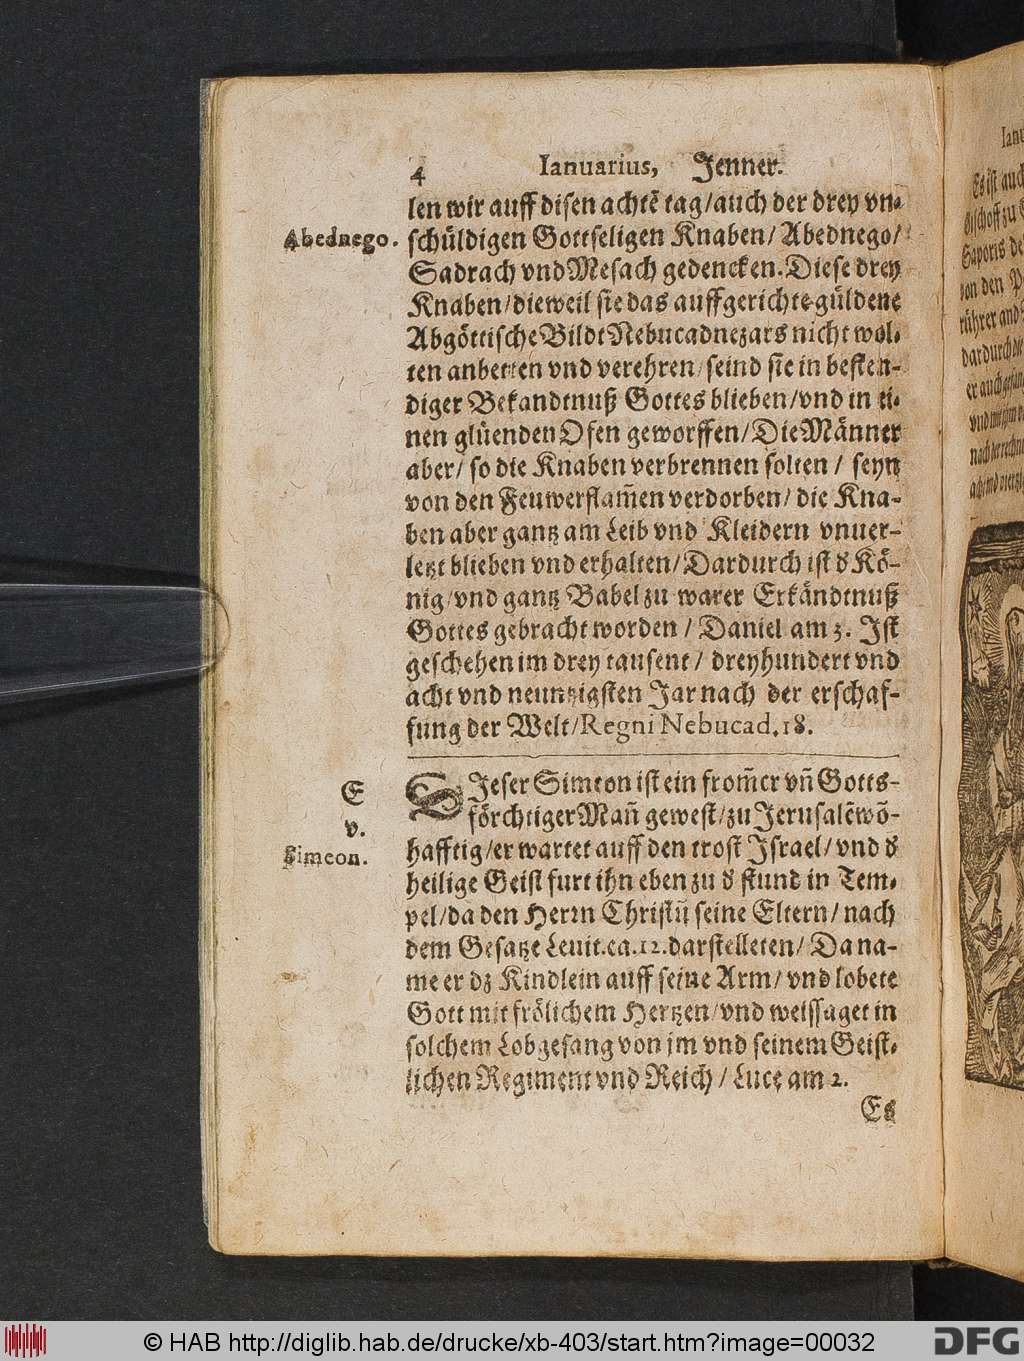 4 Ianuarius, Jenner.
len wir auff disen achtē tag/auch der drey vn-
Abednego. schüldigen Gottseligen Knaben/ Abednego/
Sadrach vnd Mesach gedencken. Diese drey
Knaben/dieweil sie das auffgerichte güldene
Abgöttische Bildt Nebucadnezars nicht wol-
ten anbetten vnd verehren/seind sie in besten-
diger Bekandtnuß Gottes blieben/vnd in ei-
nen glüenden Ofen geworffen/Die Männer
aber/ so die Knaben verbrennen solten / seyn
von den Feuwerflam̄en verdorben/ die Kna-
ben aber gantz am Leib vnd Kleidern vnuer-
letzt blieben vnd erhalten/Dardurch ist d' Kö-
nig/vnd gantz Babel zu warer Erkändtnuß
Gottes gebracht worden / Daniel am 3. Ist
geschehen im drey tausent / dreyhundert vnd
acht vnd neuntzigsten Jar nach der erschaf-
fung der Welt/Regni Nebucad.18.
E
v.
Simeon.
DIeser Simeon ist ein from̄er vn̄ Gotts-
förchtiger Man̄ gewest/zu Jerusalē wō-
hafftig/er wartet auff den trost Israel/vnd d'
heilige Geist furt ihn eben zu d' stund in Tem-
pel/da den Herrn Christū seine Eltern/nach
dem Gesatze Leuit.ca.12.darstelleten/ Da na-
me er dz Kindlein auff seine Arm/ vnd lobete
Gott mit frölichem Hertzen/vnd weissaget in
solchem Lobgesang von jm vnd seinem Geist-
lichen Regiment vnd Reich / Luce am 2.
Es
Es ist auch
Bischoff zu
Saporis
von den
dardurch die
© HAB http://diglib.hab.de/drucke/xb-403/start.htm?image=00032
DFG